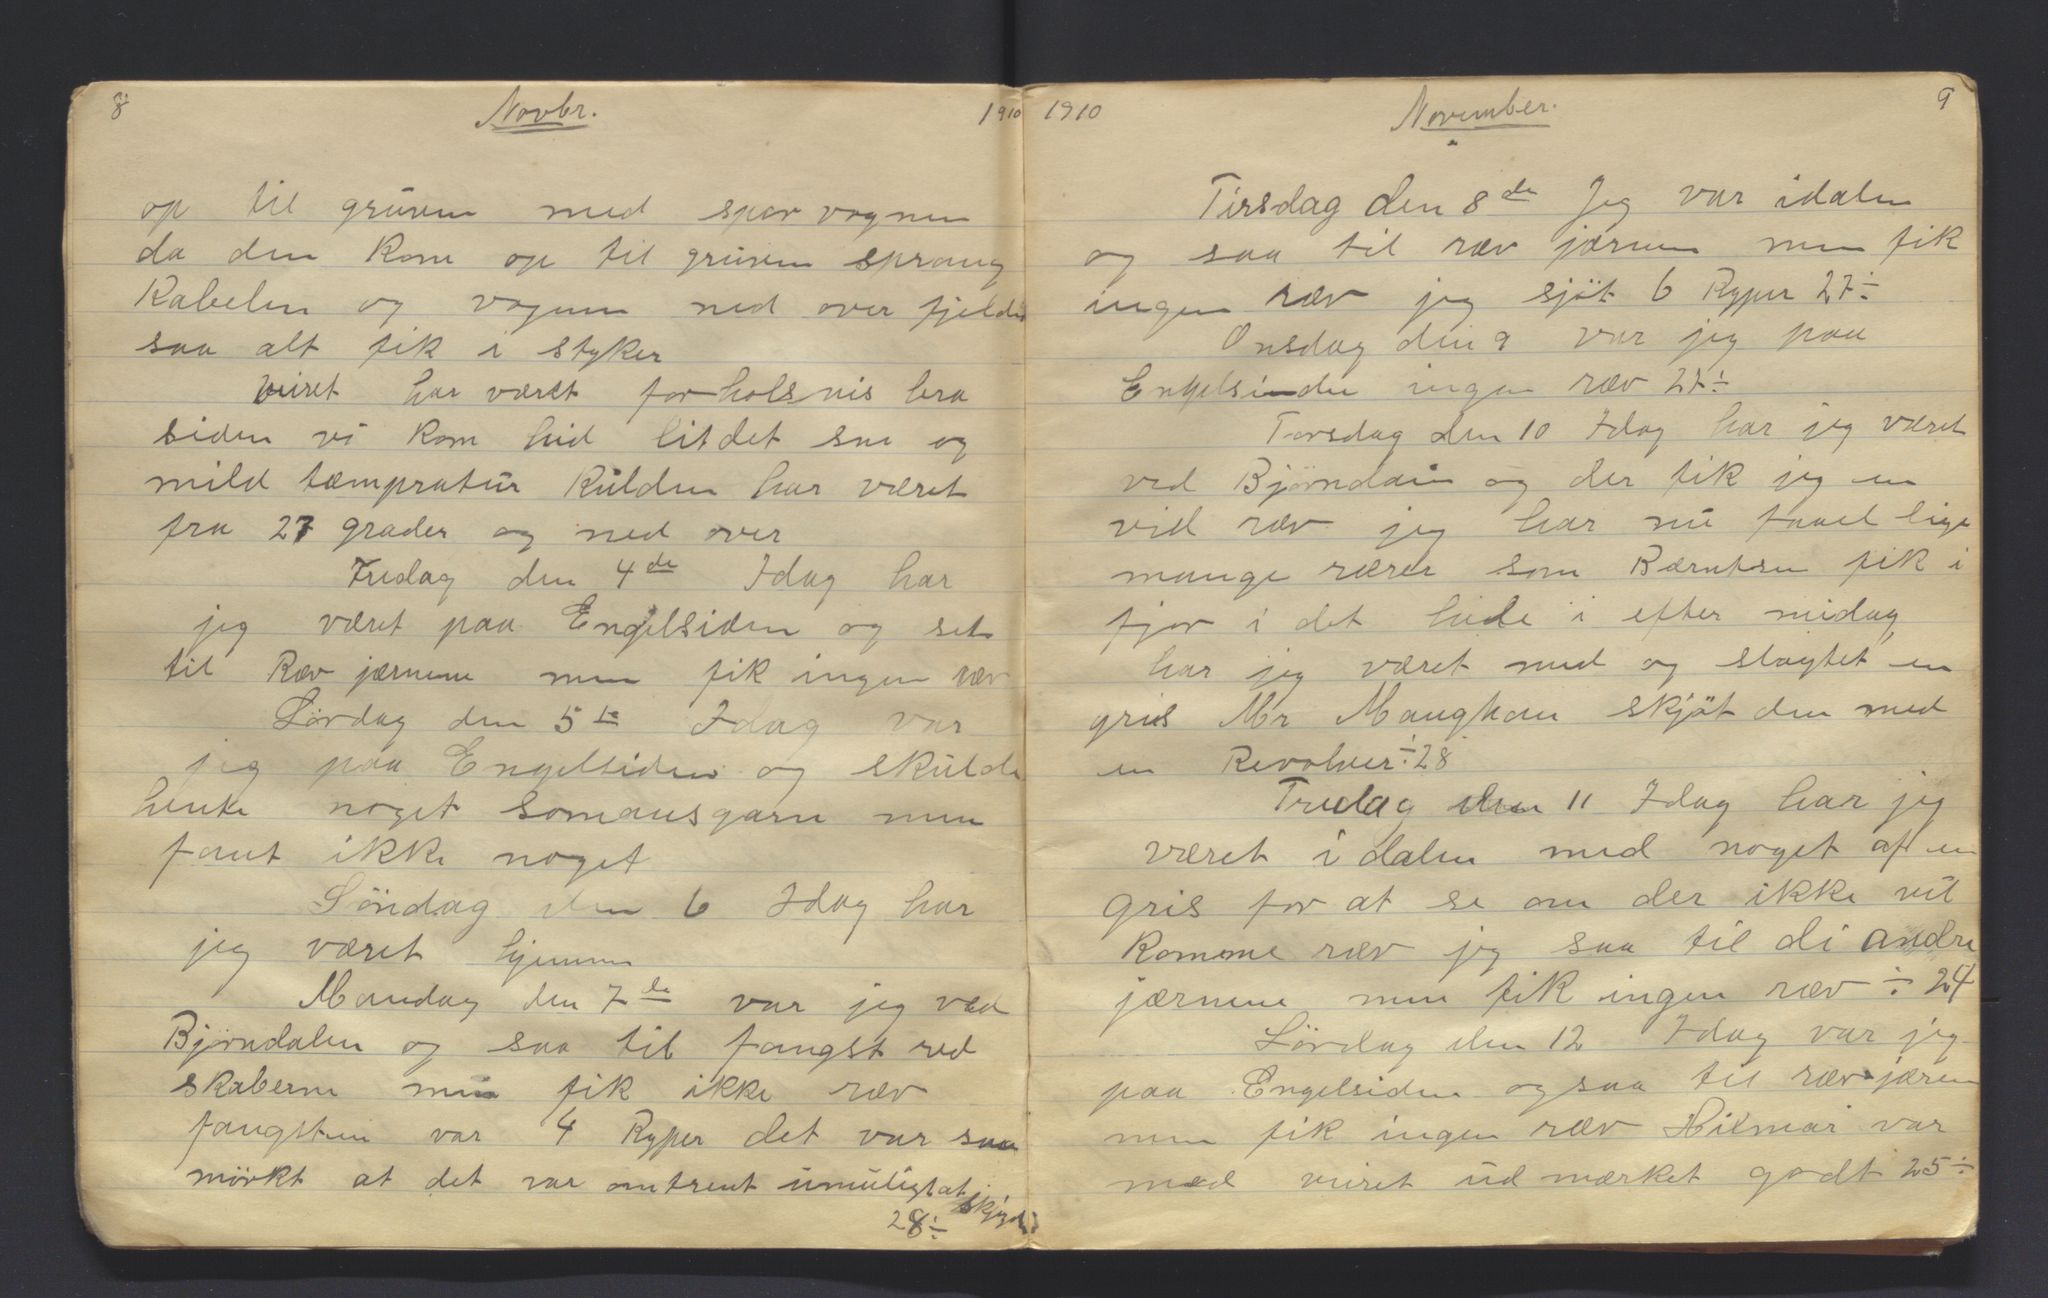 8
Novbr.
1910
op til grüven med spor vognen
da den Kom op til grüven sprang
Kabelen og vognen ned over fjeldet
saa alt fik i styker
Veiret har været forholsvis bra
siden vi Kom hid litdet sne og
mild tæmpratür Külden har været
fra 27 grader og ned over
Fredag den 4de Idag har
jeg været paa Engelsiden og set
til Ræv jærnene men fik ingen ræv
Lördag den 5te Idag var
jeg paa Engelsiden og skülde
hente noget garn men
fant ikke noget
Söndag den 6 Idag har
jeg været hjemme
Mandag den 7de var jeg ved
Bjørndalen og saa til fangst red
skaberne men fik ikke ræv
fangsten var 4 Ryper det var saa
mörkt at det var omtrent ümüligt at skjyde
28÷
1910
November.
9
Tirsdag den 8de Jeg var idalen
og saa til ræv jærnene men fik
ingen ræv jeg sjöt 6 Ryper 27÷
Onsdag den 9 var jeg paa
Engelsinden ingen ræv 27÷
Torsdag den 10 Idag har jeg været
ved Bjørndalen og der fik jeg en
vid ræv jeg har nü faaet lige
mange ræver som Bærntsen fik i
fjor i det hele i efter midag
har jeg været med og slagtet en
gris Mr Manghan skjöt den med
en Revolver ÷28
Fredag den 11 Idag har jeg
været i dalen med noget af en
gris for at se om der ikke vil
Komme ræv jeg saa til di andre
jærnene men fik ingen ræv ÷ 24
Lördag den 12 Idag var jeg
paa Engelsiden og saa til ræv jæren
men fik ingen ræv Hilmar var
med veiret üd mærket godt 25÷